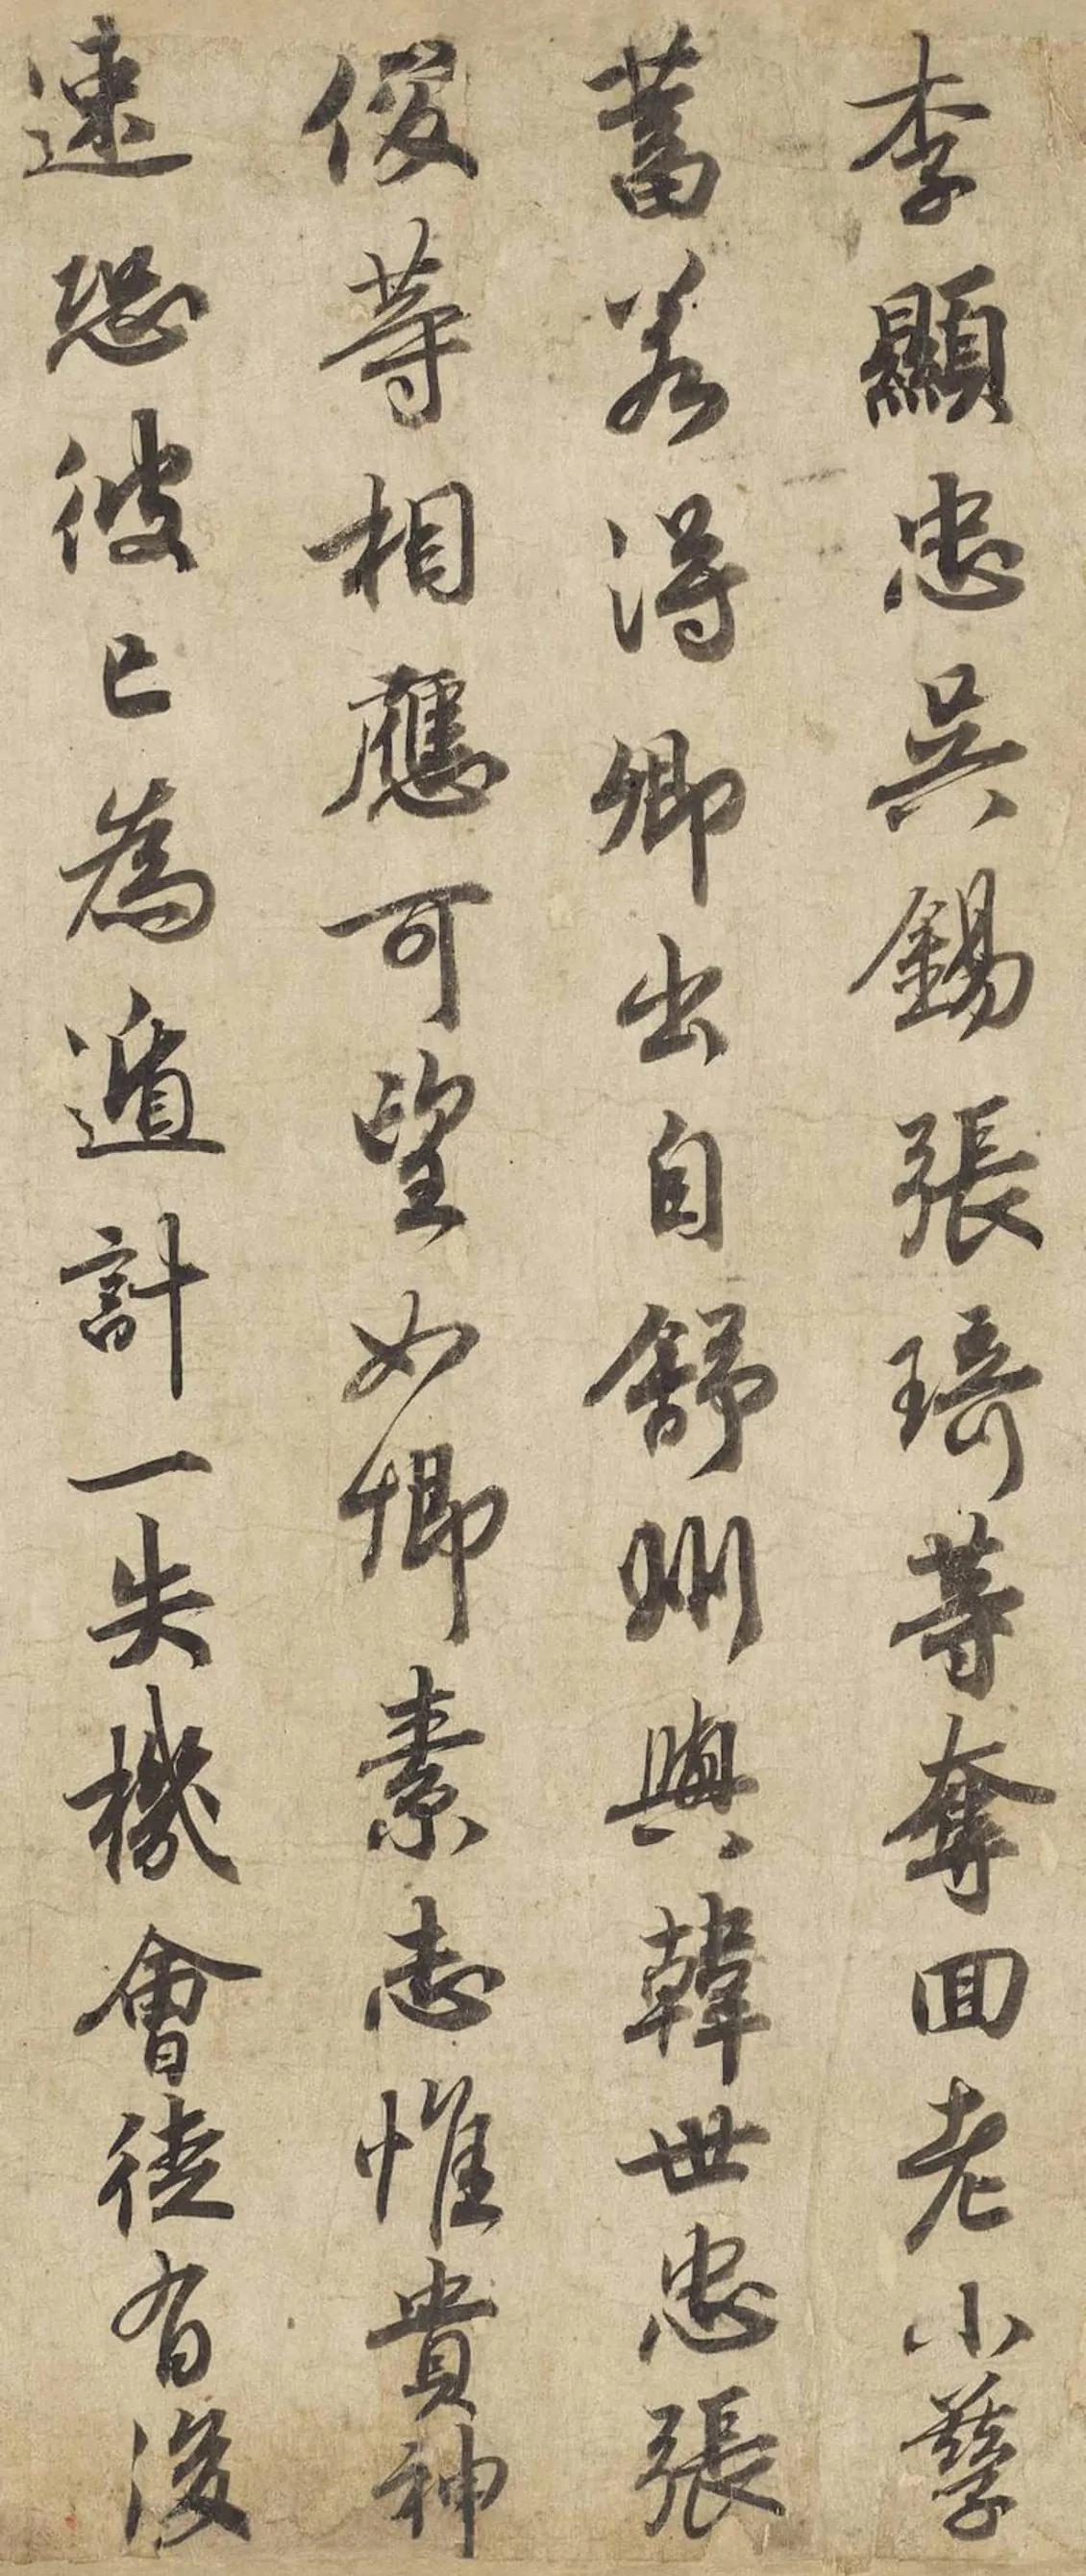 李顯忠吳錫張琦等奪回老小孳
蓄若得卿出自舒州與韓世忠張
俊等相應可望如卿素志惟貴神
速恐彼已為遁計一失機會徒有後